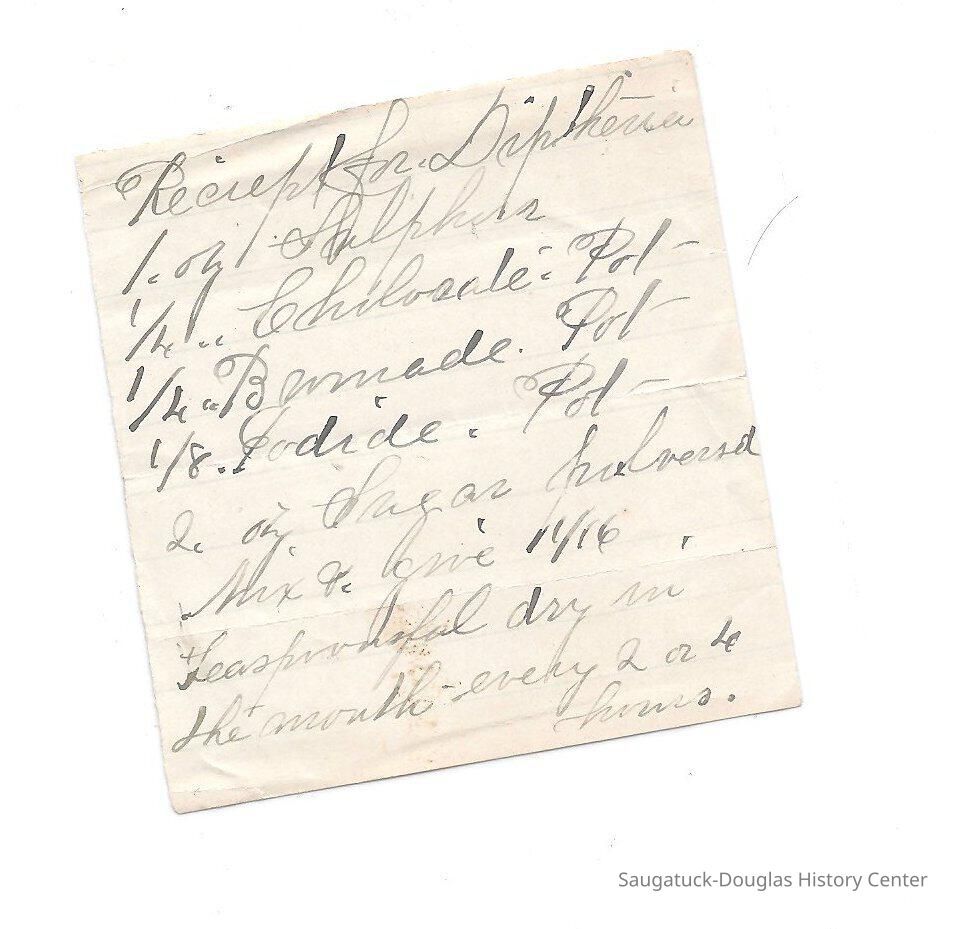 Reciept for Diptheria
1. oz Sulphur
1/4 " Chlorate. Pot
1/4 " Bromade. Pot
1/8. Iodide. Pot
2. oz Sugar pulversd
Mix & give 1/16
teaspoonful dry in
the mouth - every 2 or 4
hours.
Saugatuck-Douglas History Center